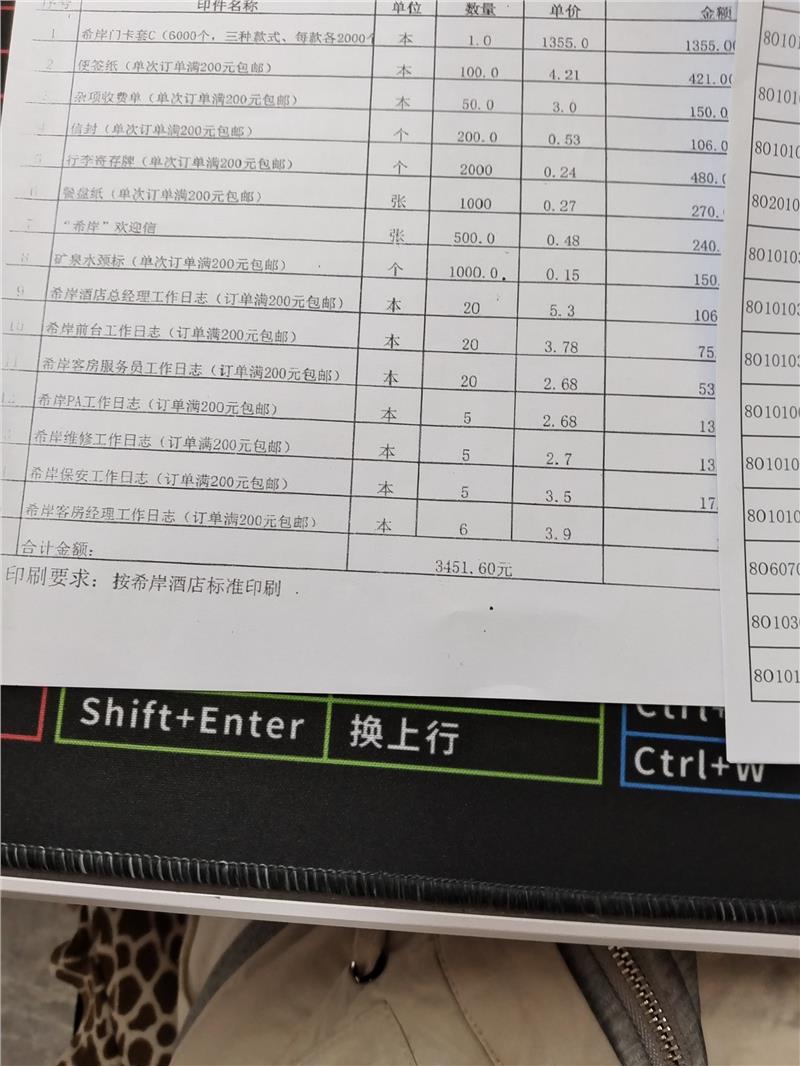 序号 印件名称 单位 数量 单价 金额
1 希岸门卡套C（6000个，三种款式、每款各2000个 本 1.0 1355.0 1355.00
2 便签纸（单次订单满200元包邮） 本 100.0 4.21 421.00
3 杂项收费单（单次订单满200元包邮） 本 50.0 3.0 150.0
4 信封（单次订单满200元包邮） 个 200.0 0.53 106.0
5 行李寄存牌（单次订单满200元包邮） 个 2000 0.24 480.0
6 餐盘纸（单次订单满200元包邮） 张 1000 0.27 270.
7 “希岸”欢迎信 张 500.0 0.48 240.
8 矿泉水颈标（单次订单满200元包邮） 个 1000.0 0.15 150
9 希岸酒店总经理工作日志（订单满200元包邮） 本 20 5.3 106
10 希岸前台工作日志（订单满200元包邮） 本 20 3.78 75
11 希岸客房服务员工作日志（订单满200元包邮） 本 20 2.68 53
12 希岸PA工作日志（订单满200元包邮） 本 5 2.68 13
希岸维修工作日志（订单满200元包邮） 本 5 2.7 13
希岸保安工作日志（订单满200元包邮） 本 5 3.5 17
希岸客房经理工作日志（订单满200元包邮） 本 6 3.9
合计金额： 3451.60元
印刷要求：按希岸酒店标准印刷
80101
801010
801010
802010
8010103
8010103
8010103
8010100
801010
801010
806070
801030
80101
Shift+Enter 换上行
Ctrl+
Ctrl+W